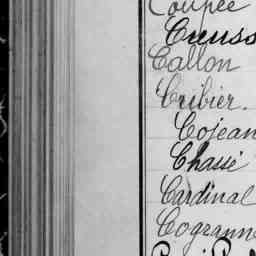 Coupée
Creuss
Callon
Cribier.
Cojean
Chassé
Cardinal
Cogranne